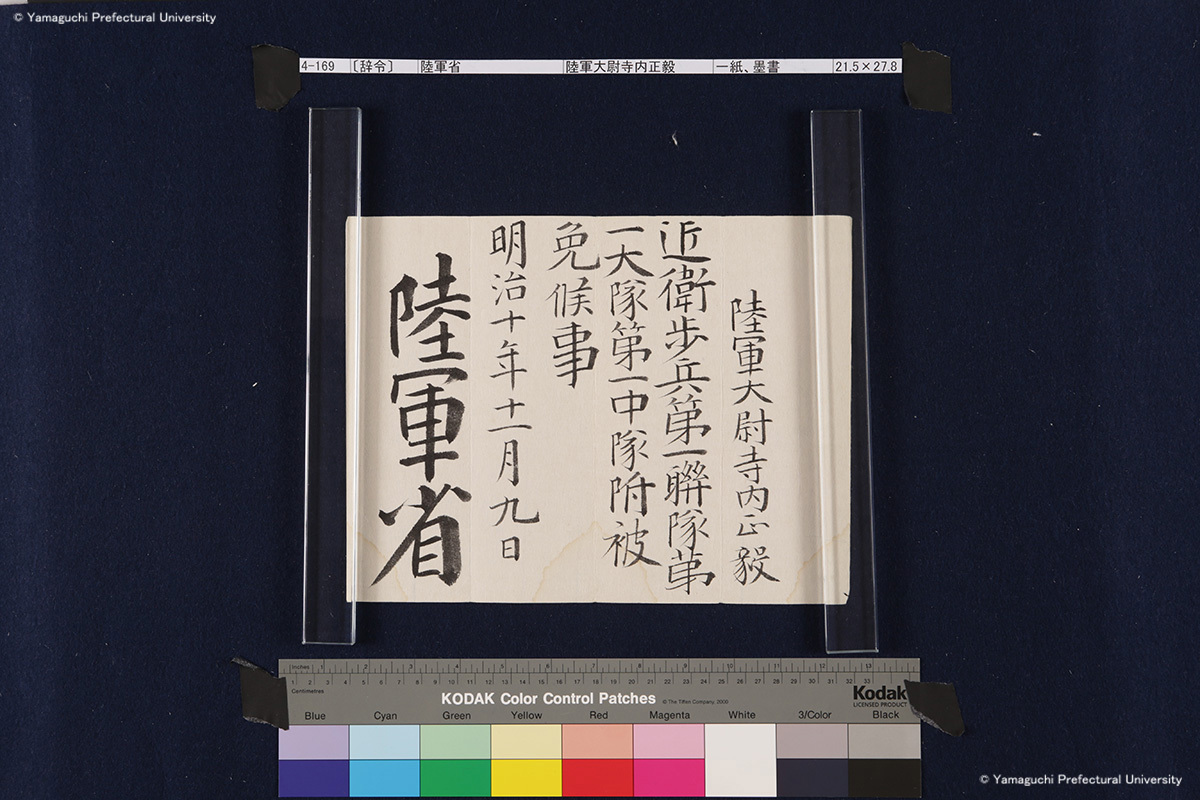 © Yamaguchi Prefectural University
4-169 〔辞令〕 陸軍省 陸軍大尉寺内正毅 一紙、墨書 21.5×27.8
陸軍大尉寺内正毅
近衛歩兵第一聯隊第
一大隊第一中隊附被
免候事
明治十年十一月九日
陸軍省
Inches 1 2 3 4 5 6 7 8 9 10 11 12 13
Centimetres 1 2 3 4 5 6 7 8 9 10 11 12 13 14 15 16 17 18 19 20 21 22 23 24 25 26 27 28 29 30 31 32 33
KODAK Color Control Patches © The Tiffen Company, 2000 Kodak
LICENSED PRODUCT
Blue Cyan Green Yellow Red Magenta White 3/Color Black
© Yamaguchi Prefectural University